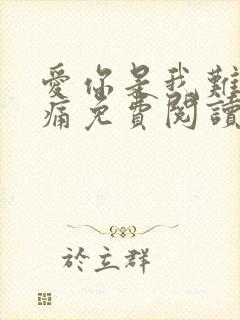 愛你是我難
痛免費閱讀
於立群